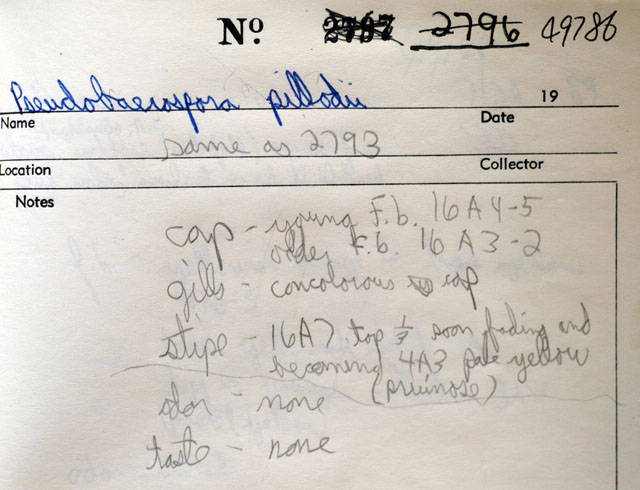 Nº 2797 2796 49786
Pseudobaeospora pillodii 19
Name Date
same as 2793
Location Collector
Notes
cap - young F.b. 16A4-5
older F.b. 16A3-2
gills - concolorous cap
stipe - 16A7 top 1/3 soon fading and
becoming 4A3 pale yellow
(pruinose)
odor - none
taste - none